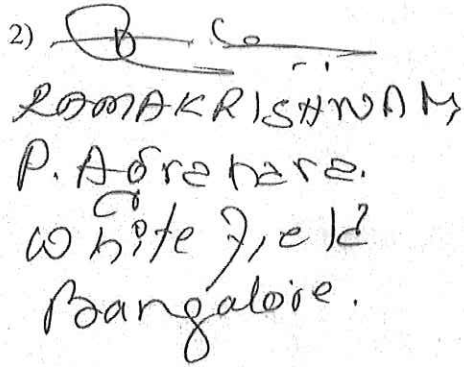 2)
RAMAKRISHNAM,
P. Agrahara.
White Field
Bangalore.